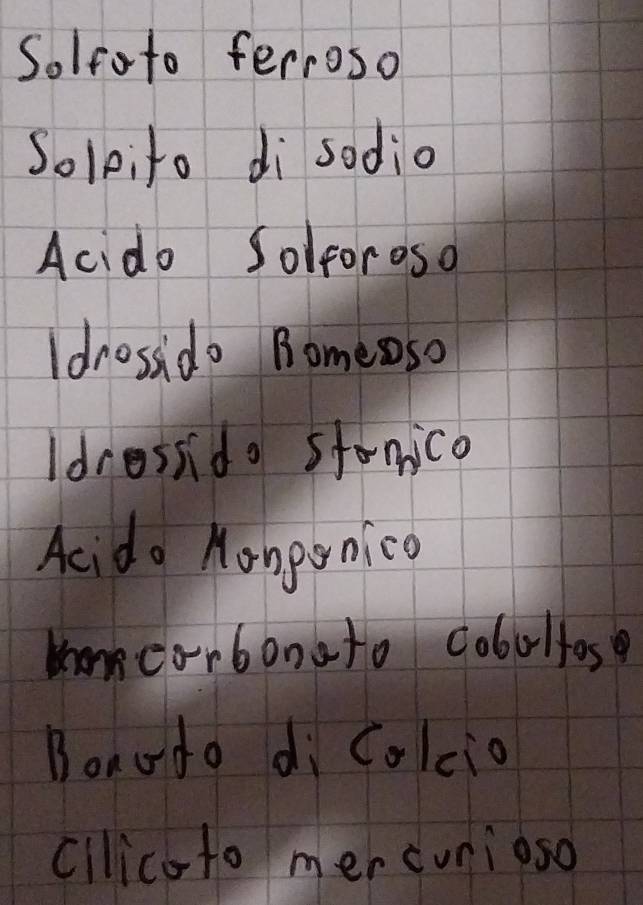 Solfato ferroso
Solfito di sodio
Acido Solforoso
Idrossido Rameoso
Idrossido stannico
Acido Manganico
carbonato cobaltoso
Borato di Calcio
Cilicato mercurioso